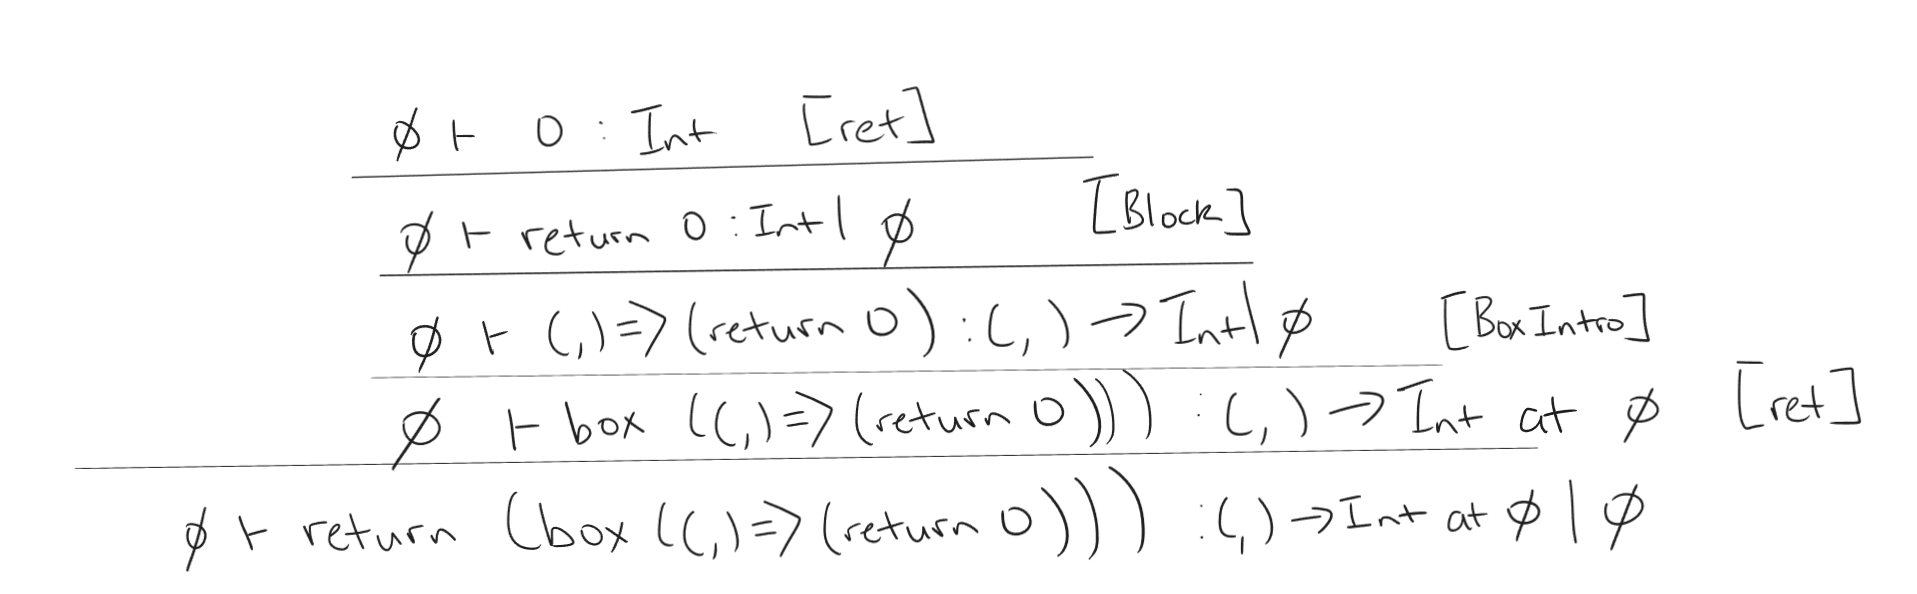 ∅ ⊢ 0 : Int [ret]
∅ ⊢ return 0 : Int | ∅ [Block]
∅ ⊢ (,) => (return 0) : (,) → Int | ∅ [BoxIntro]
∅ ⊢ box ((,) => (return 0))) : (,) → Int at ∅ [ret]
∅ ⊢ return (box ((,) => (return 0))) : (,) → Int at ∅ | ∅